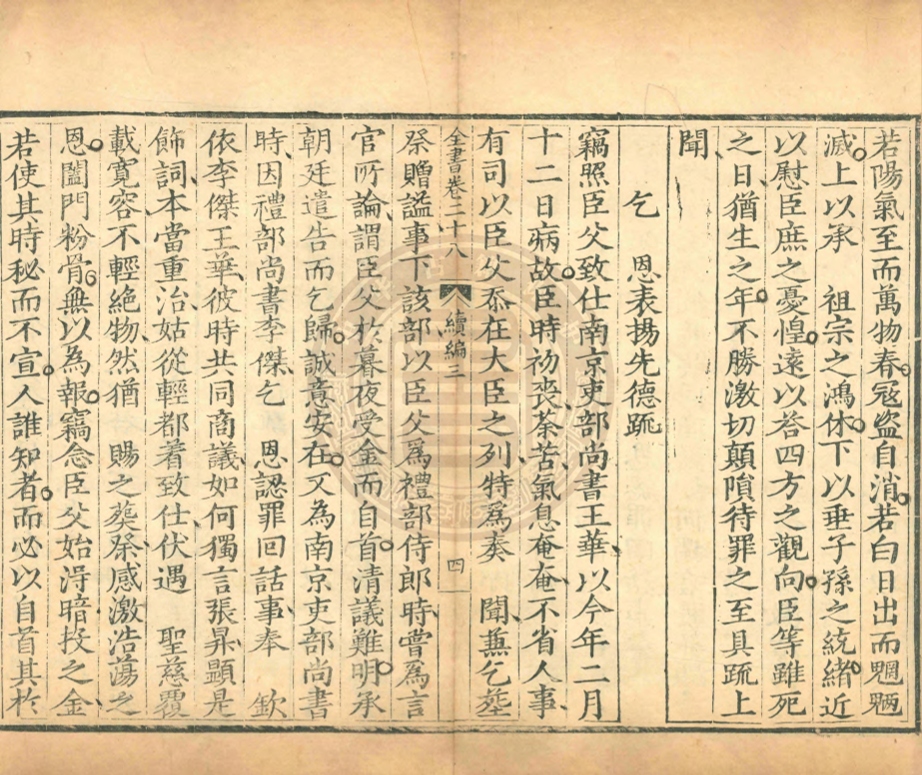 若陽氣至而萬物春。冦盗自消。若白日出而魍魎
滅。上以承　祖宗之鴻休。下以垂子孫之統緒。近
以慰臣庶之憂惶。遠以荅四方之觀向。臣等雖死
之日、猶生之年。不勝激切顛隕待罪之至具䟽上
聞
乞　恩表揚先德䟽
竊照臣父致仕南京吏部尚書王華以今年二月
十二日病故。臣時初丧、荼苦、氣息奄奄、不省人事、
有司以臣父忝在大臣之列、特爲奏　聞、蕪乞塟
祭贈謚事下該部以臣父爲禮部侍郎時、嘗爲言
官所論、謂臣父於暮夜受金而自首。清議難明。承
朝廷遣告而乞歸。誠意安在。又為南京吏部尚書
時、因禮部尚書李傑乞　恩認罪回話事奉　欽
依李傑王華、彼時共同商議、如何獨言張昇顯是
飾詞、本當重治姑從輕都着致仕、伏遇　聖慈覆
載寛容、不輕絶物、然猶　賜之塟祭、感激浩蕩之
恩。闔門粉骨。無以為報。竊念臣父始淂暗投之金、
若使其時秘而不宣。人誰知者。而必以自首。其於
全書卷二十八　續編三　四